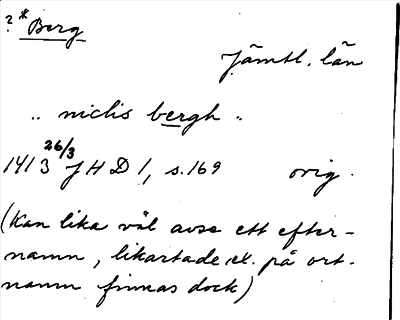 ? * Berg
Jämtl. län
„ niclis bergh „
1413 26/3 JHD 1, s. 169 orig.
(Kan lika väl avse ett efter-
namn, likartade ex. på ort-
namn finnas dock)